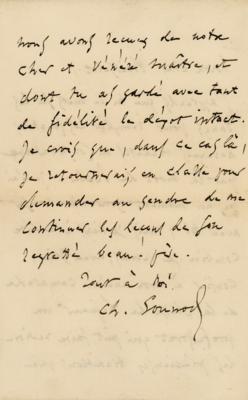 nous avons reçues de notre
cher et Vénéré maître, et
dont tu as gardé avec tant
de fidélité le dépôt intact.
Je crois que, dans ce cas là,
je retournerais en classe pour
demander au gendre de me
continuer les leçons de son
regretté beau-père.
Tout à toi
Ch. Gounod